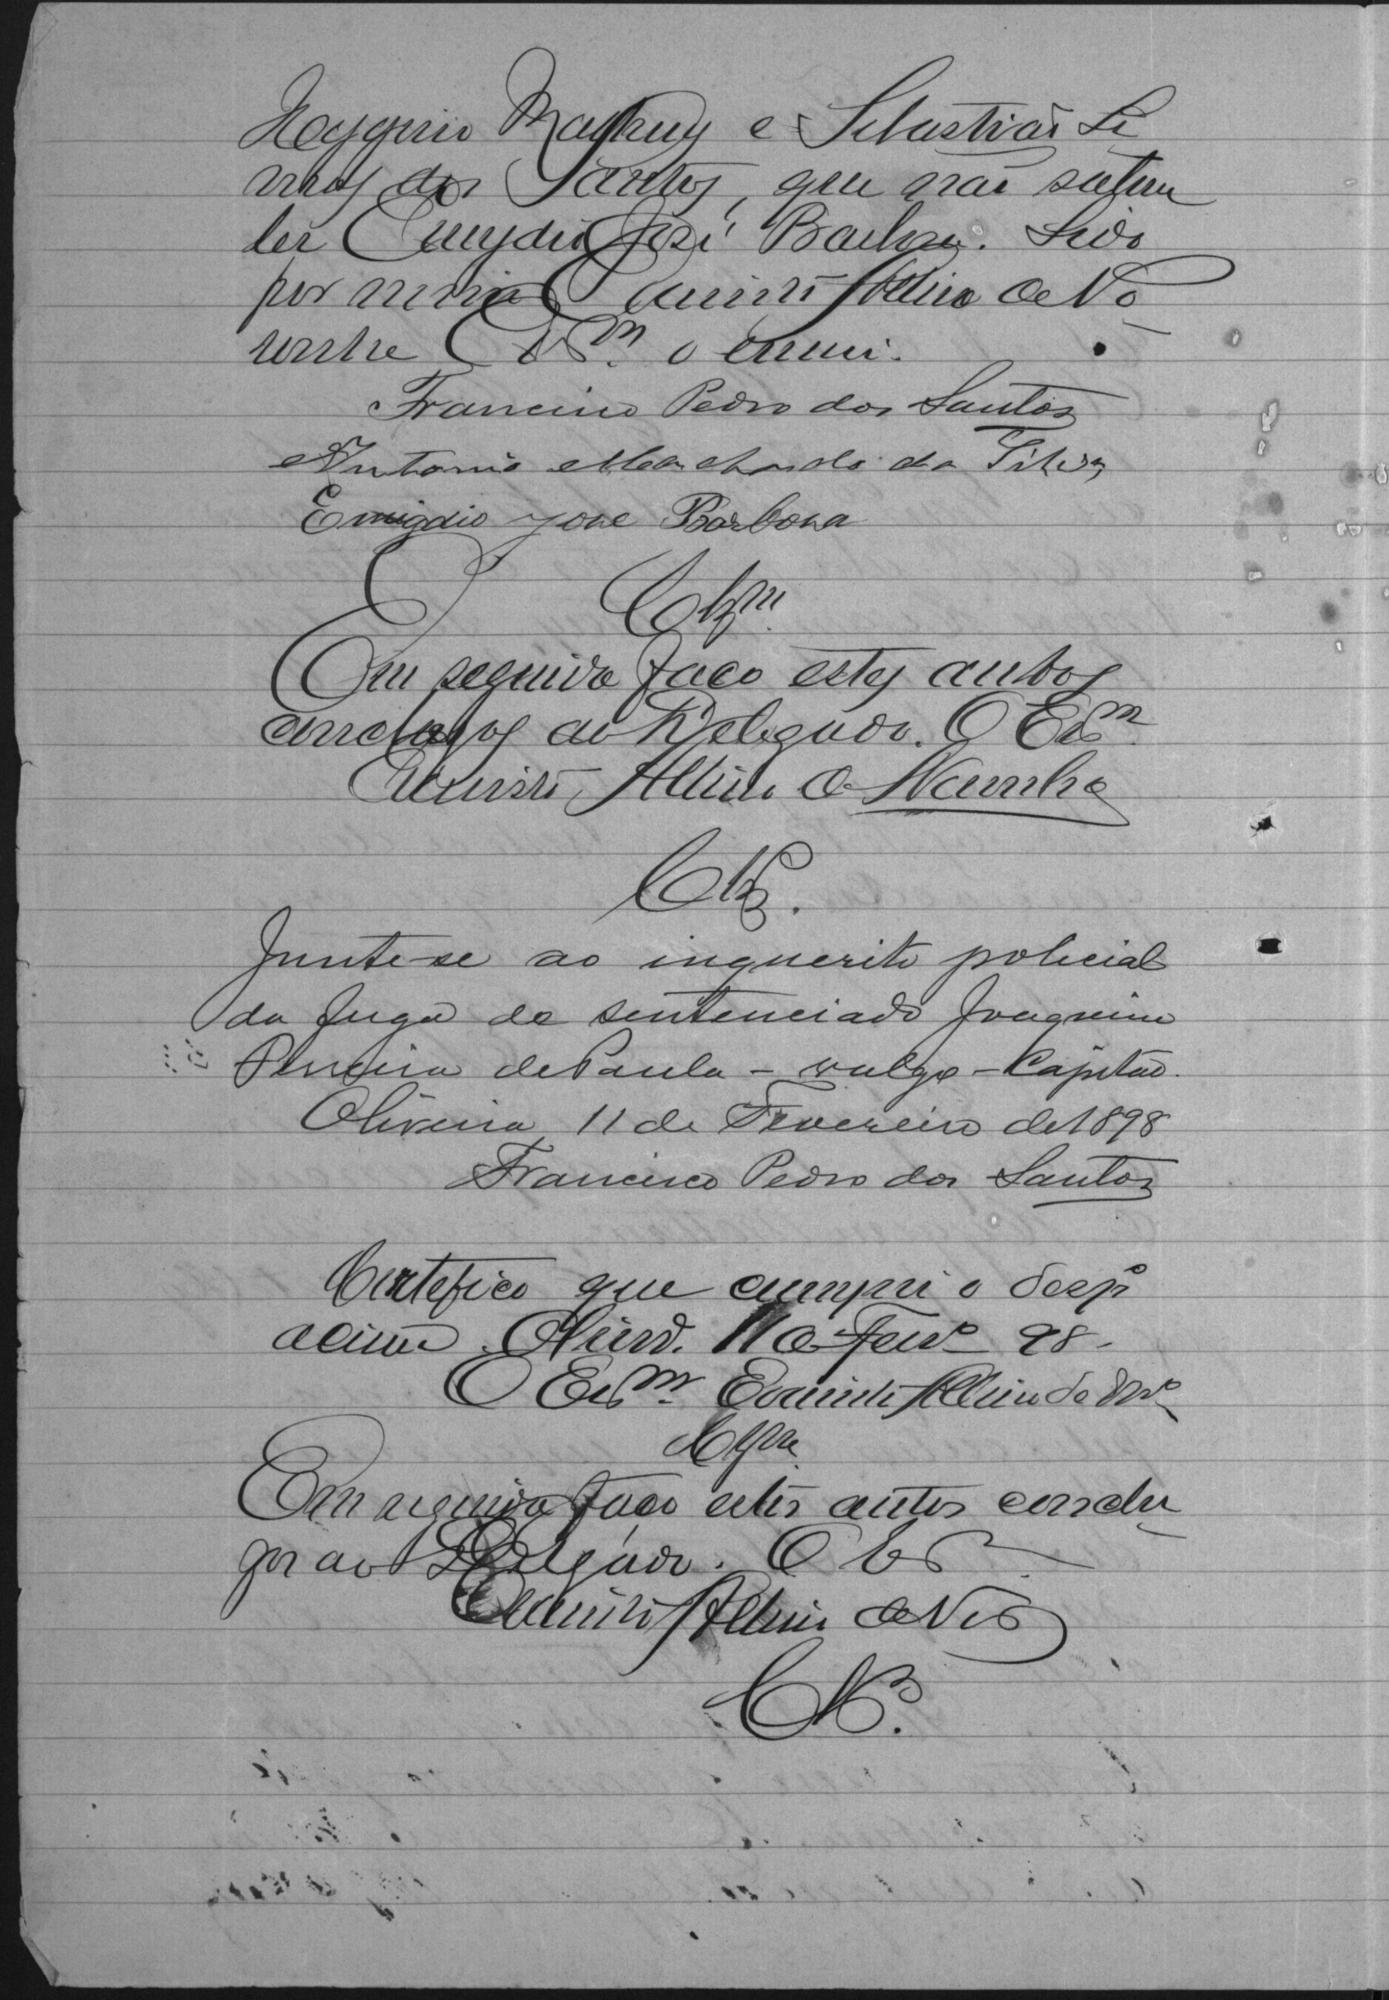 e Sebastião Le
mos dos Santos, que não sabem
ler Emygdio José Barboza. Lido
por mim Evaristo Albino de No
ronha Esm. o escrevi.
Francisco Pedro dos Santos
Antonio Machado da Silva
Emigdio Jose Barbosa
Clzm.
Em seguida faço estes autos
conclusos ao Delegado. O Esm.
Evaristo Albino de Noronha
Clz.
Junte-se ao inquerito policial
da fuga do sentenciado Joaquim
Pereira de Paula - vulgo - Capitão.
Oliveira 11 de Fevereiro de 1898
Francisco Pedro dos Santos
Certefico que cumpri o desp.o
acima. Olivrª. 11 de Fevº 98.
O Esm. Evaristo Albino de Nrª
Em seguida faço estes autos conclu
sos ao Delegado. O Es.
Evaristo Albino de Nrª
Clz.